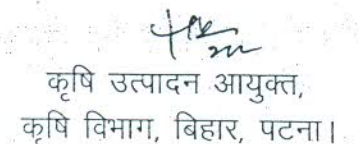 कृषि उत्पादन आयुक्त,
कृषि विभाग, बिहार, पटना।